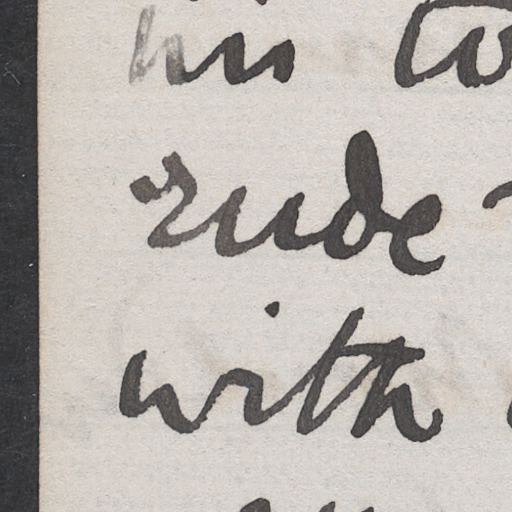 his to
rude
with